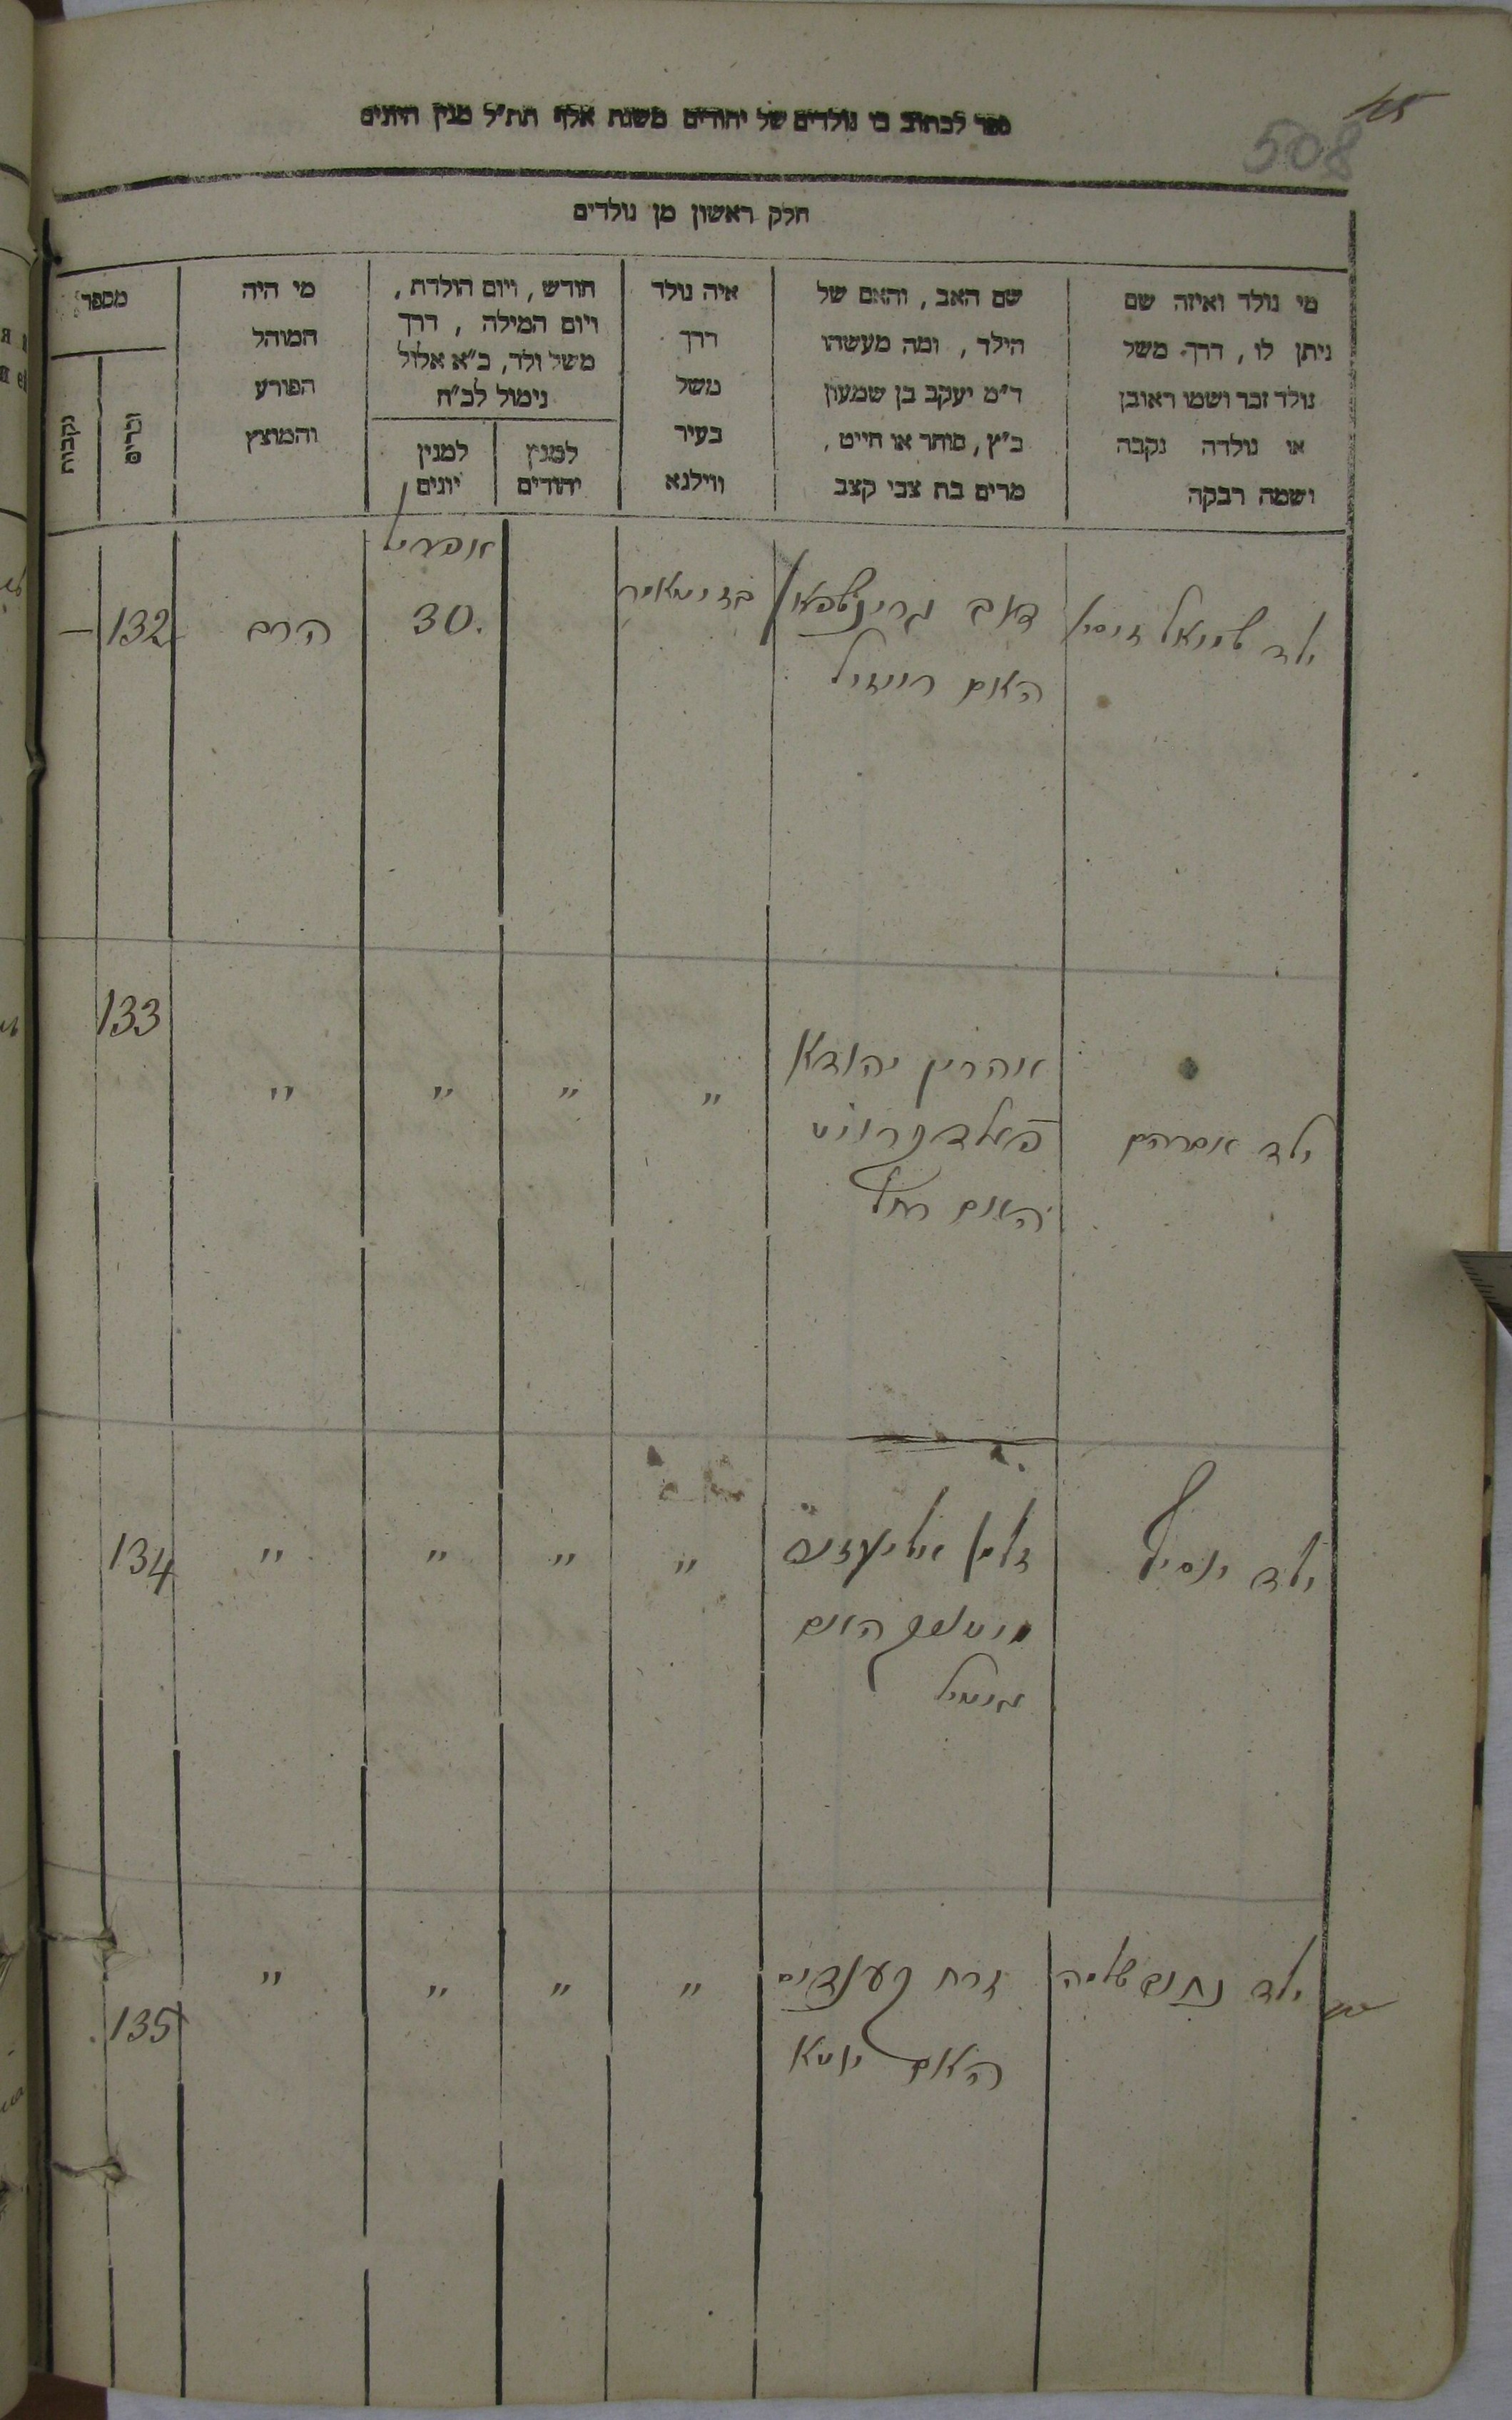 508
ספר לכתוב בו נולדים של יהודים משנת אלף תת״ל מנין היונים
חלק ראשון מן נולדים
מי נולד ואיזה שם
ניתן לו, דרך משל
נולד זכר ושמו ראובן
או נולדה נקבה
ושמה רבקה
שם האב, והאם של
הילד, ומה מעשהו
ד״מ יעקב בן שמעון
כ״ץ, סוחר או חייט,
מרים בת צבי קצב
איה נולד
דרך
משל
בעיר
ווילנא
חודש, ויום הולדת,
ויום המילה, דרך
משל ולד, כ״א אלול
נימול לכ״ח
למנין
יהודים
למנין
יונים
מי היה
המוהל
הפורע
והמוצץ
מספר
זכרים
נקבות
ילד שמואל זיסיא
דוב גרינשפאן
האם רייזיל
אפריל
30.
הרב
132 —
ילד אברהם
אהרין יהודא
האם רחל
"
"
"
"
133
ילד יוסיף
זלמן
האם
"
"
"
"
134
ילד נחום שלמה
זרח
האם יוטא
"
"
"
"
135